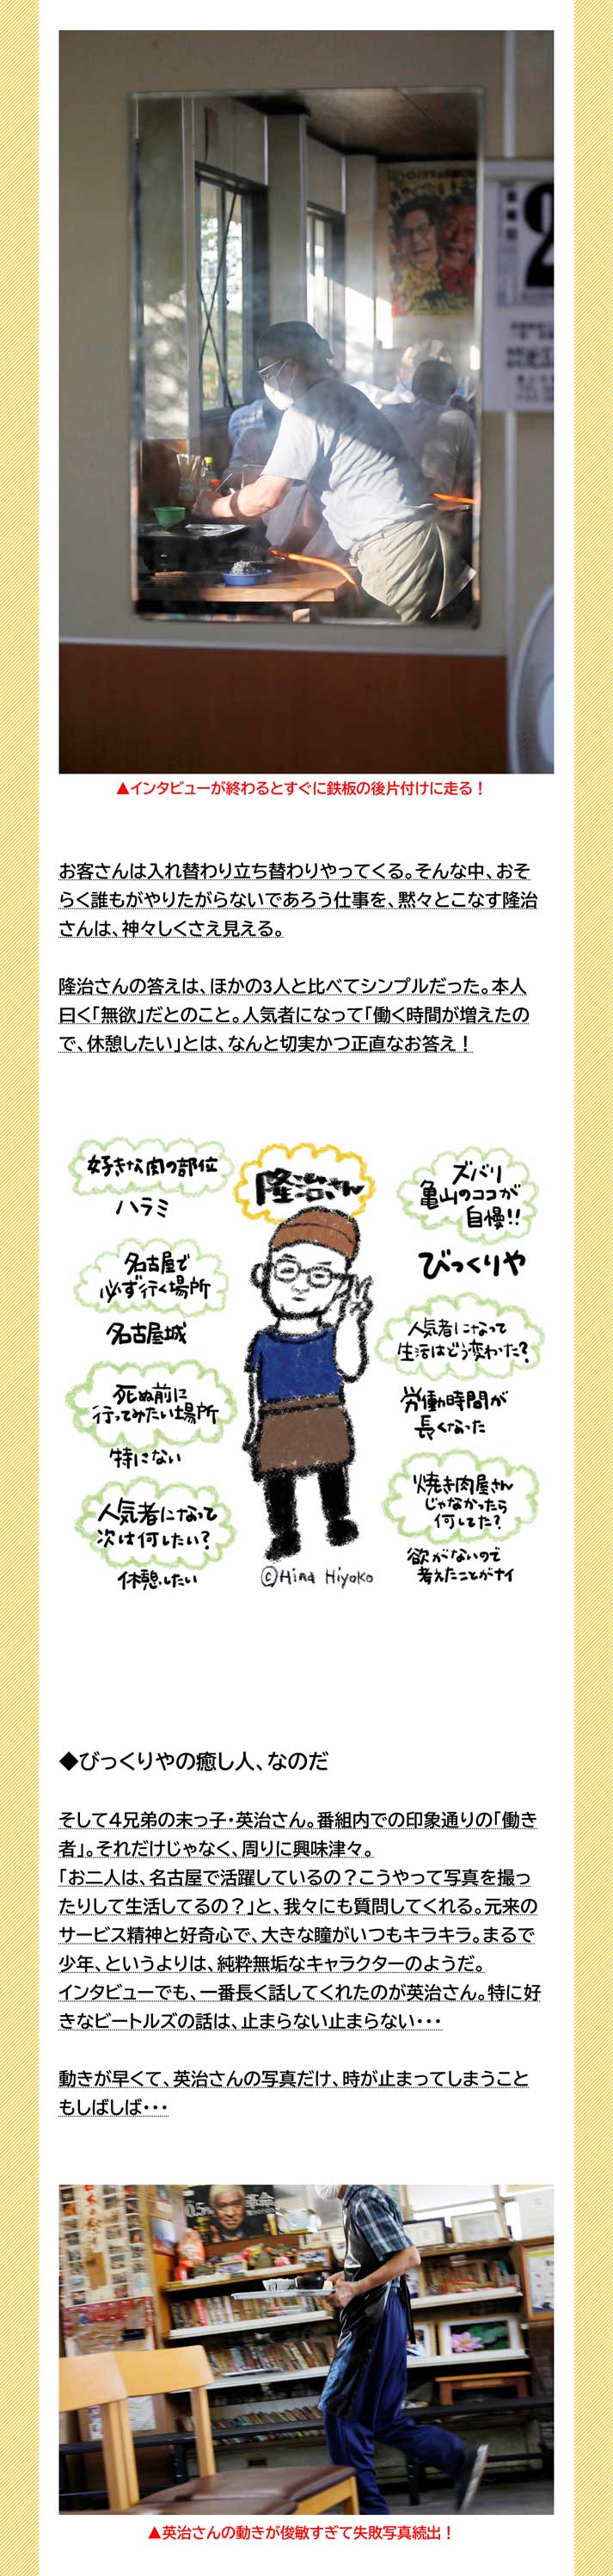 2
▲インタビューが終わるとすぐに鉄板の後片付けに走る！
お客さんは入れ替わり立ち替わりやってくる。そんな中、おそ
らく誰もがやりたがらないであろう仕事を、黙々とこなす隆治
さんは、神々しくさえ見える。
隆治さんの答えは、ほかの3人と比べてシンプルだった。本人
曰く「無欲」だとのこと。人気者になって「働く時間が増えたの
で、休憩したい」とは、なんと切実かつ正直なお答え！
隆治さん
好きな肉の部位
ハラミ
名古屋で
必ず行く場所
名古屋城
死ぬ前に
行ってみたい場所
特にない
人気者になって
次は何したい?
休憩したい
ズバリ
亀山のココが
自慢!!
びっくりや
人気者になって
生活はどう変わった?
労働時間が
長くなった
焼き肉屋さん
じゃなかったら
何してた?
欲がないので
考えたことがナイ
©Hina Hiyoko
◆びっくりやの癒し人、なのだ
そして4兄弟の末っ子・英治さん。番組内での印象通りの「働き
者」。それだけじゃなく、周りに興味津々。
「お二人は、名古屋で活躍しているの？こうやって写真を撮っ
たりして生活してるの？」と、我々にも質問してくれる。元来の
サービス精神と好奇心で、大きな瞳がいつもキラキラ。まるで
少年、というよりは、純粋無垢なキャラクターのようだ。
インタビューでも、一番長く話してくれたのが英治さん。特に好
きなビートルズの話は、止まらない止まらない・・・
動きが早くて、英治さんの写真だけ、時が止まってしまうこと
もしばしば・・・
▲英治さんの動きが俊敏すぎて失敗写真続出！